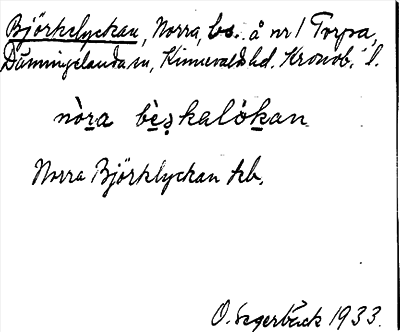 Björkelyckan, Norra, bs. å nr 1 Torpa,
Dänningelanda sn, Kinnevalds hd. Kronob. l.
nòra bèskalókan
Norra Björklyckan kb.
O. Sagerbäck 1933.